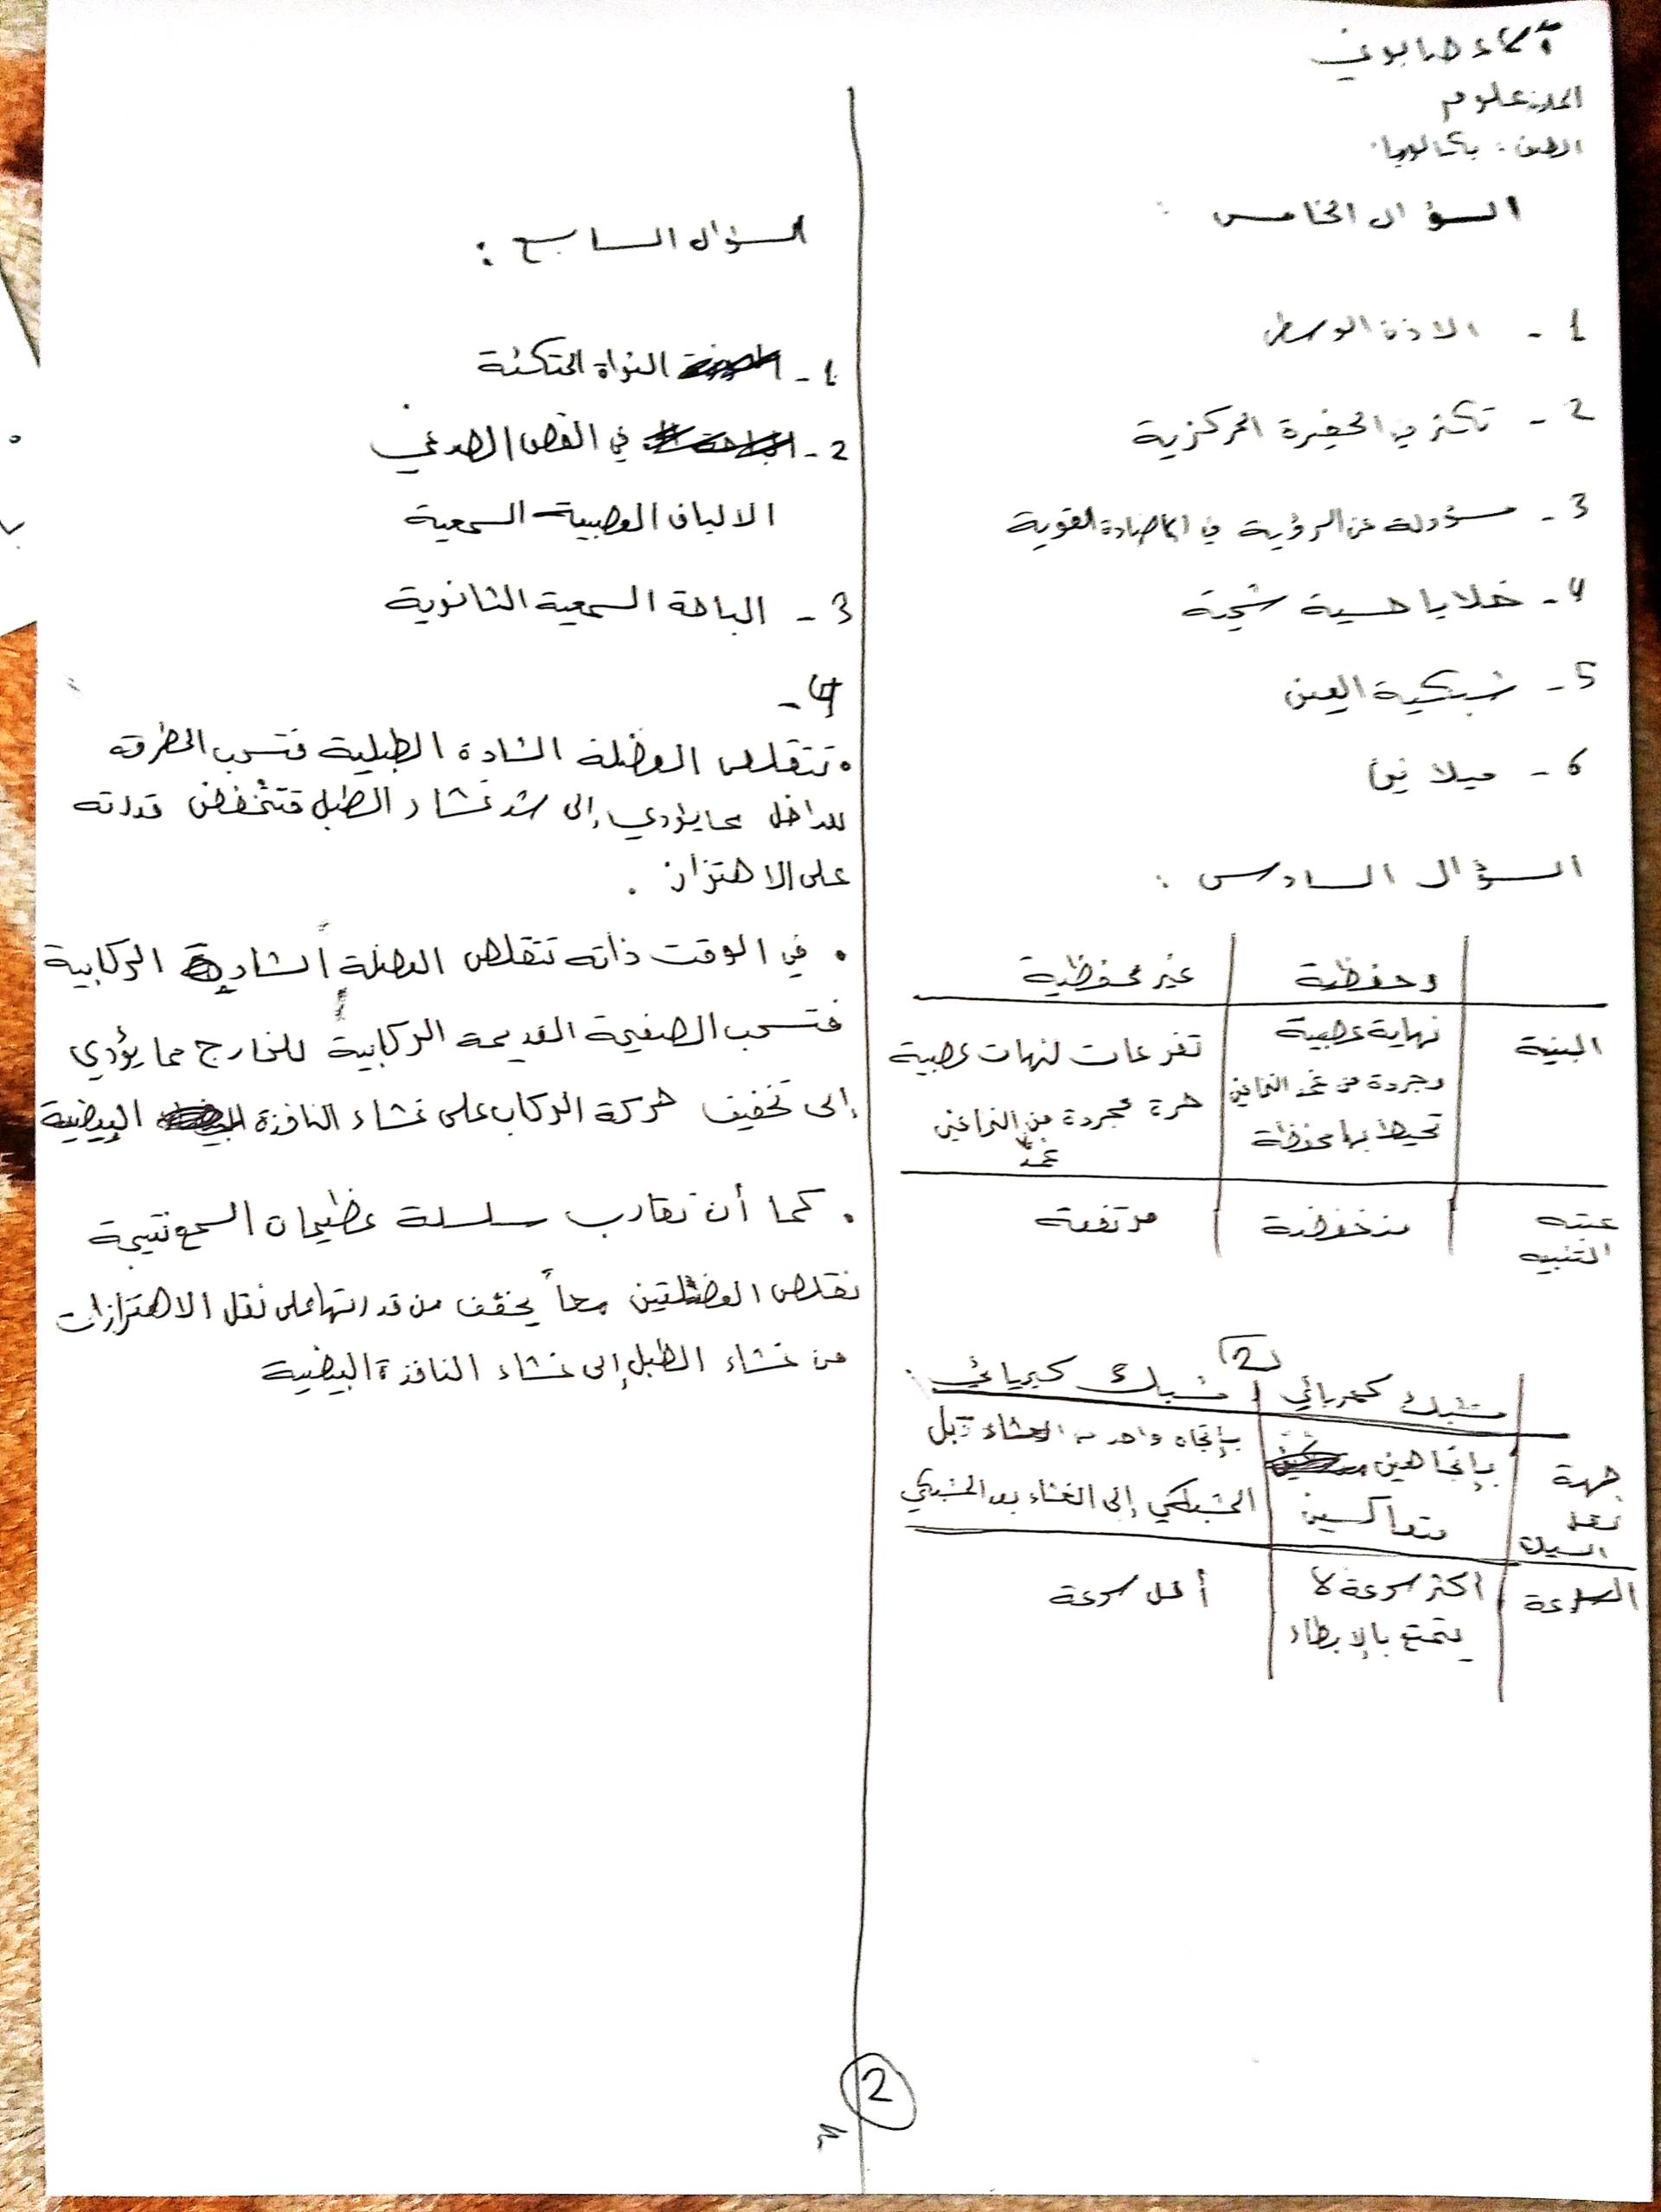 آلاء صابوني
المادة علوم
الصف : بكالوريا
السؤال الخامس :
1 - الاذن الوسطى
2 - تكثر في الحفيرة المركزية
3 - مسؤولة عن الرؤية في الإضاءة القوية
4 - خلايا حسية شمية
5 - شبكية العين
6 - ميلانين
السؤال السادس :
محفظية
غير محفظية
البنية
نهاية عصبية
مجردة من غمد النخاعين
تحيط بها محفظة
تفرعات لنهات عصبية
حرة مجردة من النخاعين
غمد
عتبة
التنبيه
منخفضة
مرتفعة
2
مشبك كهربائي
مشبك كيميائي
جهة
نقل
السيالة
بإتجاهين
متعاكسين
بإتجاه واحد من الغشاء قبل
المشبكي إلى الغشاء بعد المشبكي
السرعة
أكثر سرعة لا
يتمتع بالإبطاء
أقل سرعة
السؤال السابع :
1 - النواة المتكئة
2 - في الفص الصدغي
الالياف العصبية السمعية
3 - الباحة السمعية الثانوية
4 -
• تتقلص العضلة الشادة الطبلية فتسحب المطرقة
للداخل مما يؤدي إلى شد غشاء الطبل فتنخفض قدرته
على الاهتزاز .
• في الوقت ذاته تتقلص العضلة الشادة الركابية
فتسحب الصفيحة القديمة الركابية للخارج مما يؤدي
إلى تخفيف حركة الركاب على غشاء النافذة البيضية
• كما أن تقارب سلسلة عظيمات السمع نتيجة
تقلص العضلتين معاً يخفف من قدرتها على نقل الاهتزازات
من غشاء الطبل إلى غشاء النافذة البيضية
2